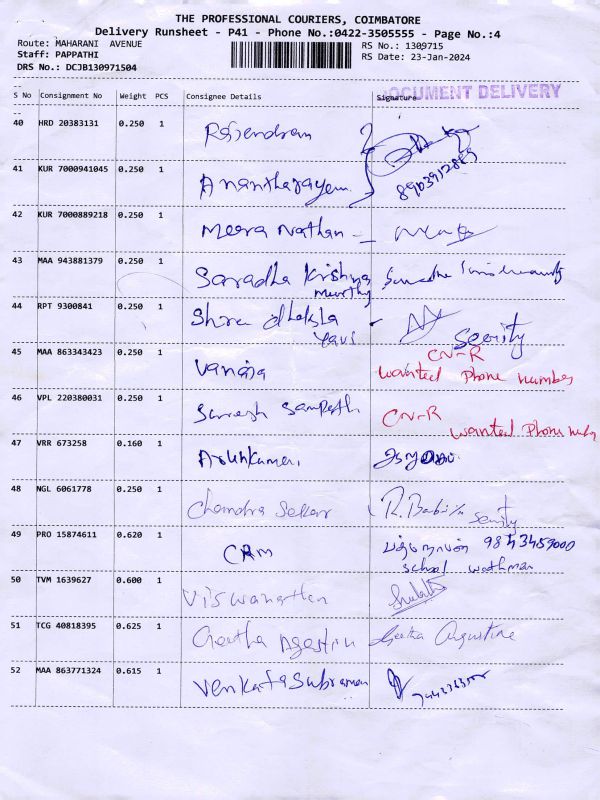 THE PROFESSIONAL COURIERS, COIMBATORE
Delivery Runsheet - P41 - Phone No.:0422-3505555 - Page No.:4
Route: MAHARANI AVENUE RS No.: 1309715
Staff: PAPPATHI RS Date: 23-Jan-2024
DRS No.: DCJB130971504
DOCUMENT DELIVERY
S No Consignment No Weight PCS Consignee Details Signature
40 HRD 20383131 0.250 1 Rajendran
41 KUR 7000941045 0.250 1
42 KUR 7000889218 0.250 1 Meera Nathan
43 MAA 943881379 0.250 1 Saradha Krishna
Moorthy
44 RPT 9300841 0.250 1 Shree
Serity
45 MAA 863343423 0.250 1 Vanaja CN-R
wanted Phone number
46 VPL 220380031 0.250 1 Suresh Sampath CN-R
wanted Phone
47 VRR 673258 0.160 1 Arunkumar
48 NGL 6061778 0.250 1 Chandra Sekar R. Babu
Serity
49 PRO 15874611 0.620 1 CRM
School wathman
50 TVM 1639627 0.600 1 Viswanathan
51 TCG 40818395 0.625 1 Geetha Agastin Geetha Augustine
52 MAA 863771324 0.615 1 Venkatasubraman